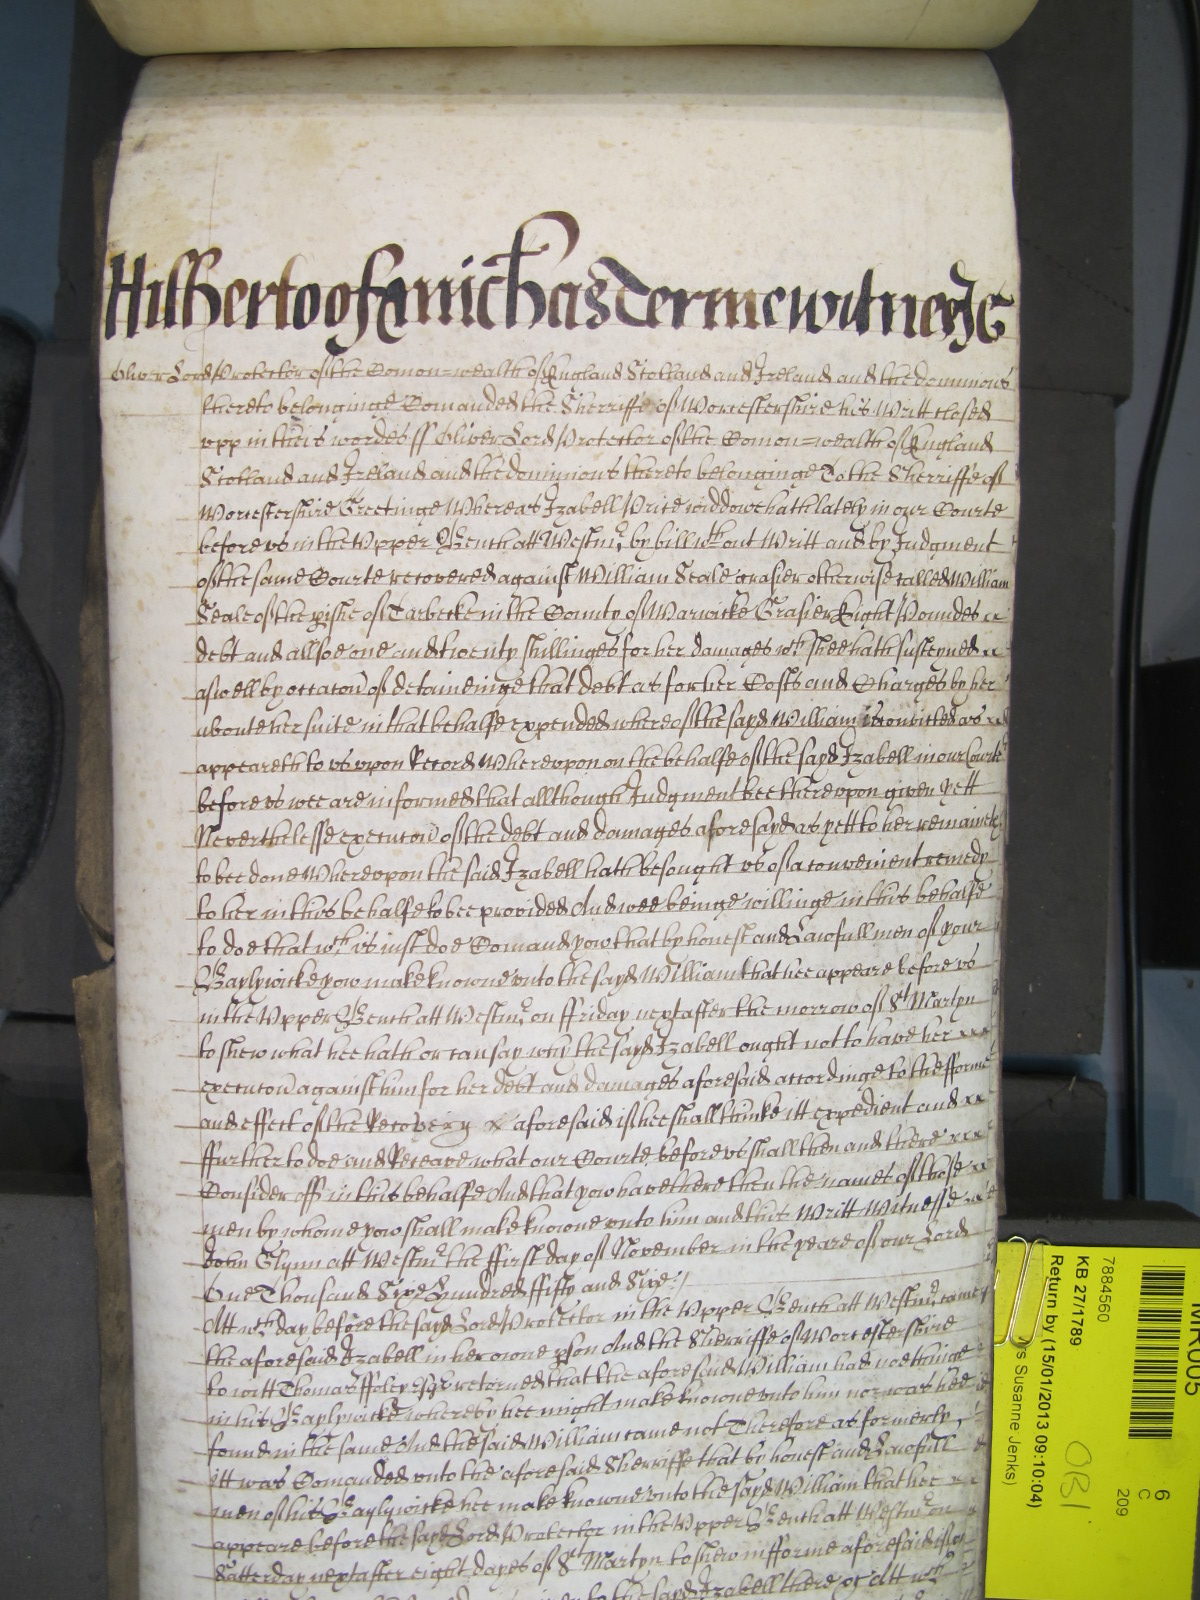 Hitherto of Michas Terme witnesse
Oliver Lord Protector of the Comon=wealth of England Scotland and Ireland and the dominions
thereto belonginge Comanded the Sherriffe of Worcestershire his Writt closed
vpp in theis wordes ss Oliver Lord Protector of the Comon=wealth of England
Scotland and Ireland and the dominions thereto belonginge To the Sherriffe of
Worcestershire Greetinge Whereas Izabell Price widdowe hath lately in our Courte
before vs in the Vpper Bench att Westmr by bill wthout Writt and by Judgment
of the same Courte recovered against William Seale grasier otherwise called William
Seale of the pishe of Tarbecke in the County of Warwicke Grasier Eight Poundes
debt and allsoe one and twenty shillinges for her damages wch shee hath susteyned
aswell by occacon of detaineinge that debt as for her Costs and Charges by her
aboute her suite in that behalfe expended whereof the sayd William is convicted as
appeareth to vs vpon Record Wherevpon on the behalfe of the sayd Izabell in our Courte
before vs wee are informed that allthough Judgment bee therevpon given yett
Neverthelesse execucon of the debt and damages aforesayd as yett to her remaines
to bee done Wherevpon the said Izabell hath besought vs of a convenient remedy
to her in this behalfe to bee provided And wee beinge willinge in this behalfe
to doe that wch is just doe Comand yow that by honest and Lawfull men of your
Baylywicke yow make knowne vnto the sayd William that hee appeare before vs
in the Vpper Bench att Westmr on ffriday next after the morrow of St Martyn
to shew what hee hath or can say why the sayd Izabell ought not to have her
execucon against him for her debt and damages aforesaid accordinge to the fforme
and effect of the Recovery aforesaid if hee shall thinke itt expedient and
ffurther to doe and Receave what our Courte before vs shall then and there
Consider off in this behalfe And that yow have there then the names of those
men by whome yow shall make knowne vnto him and this Writt Witnesse
John Glynn att Westmr the ffirst day of November in the yeare of our Lord
One Thousand Sixe Hundred ffifty and Sixe
Att wch day before the sayd Lord Protector in the Vpper Bench att Westmr came
the aforesaid Izabell in her owne pson And the Sherriffe of Worcestershire
to witt Thomas ffoley Esqr returned that the aforesaid William had nothinge
in his Baylywicke whereby hee might make knowne vnto him nor was hee
found in the same And the said William came not Therefore as formerly
itt was Comanded vnto the aforesaid Sherriffe that by honest and Lawfull
men of his Baylywicke hee make knowne vnto the sayd William that hee
appeare before the sayd Lord Protector in the Vpper Bench att Westmr on
Satterday next after eight dayes of St Martyn to shew in fforme aforesaid if
to the sayd Izabell there Att wch
7884560
KB 27/1789
Return by (15/01/2013 09:10:04)
Susanne Jenks)
MR005
6
C
209